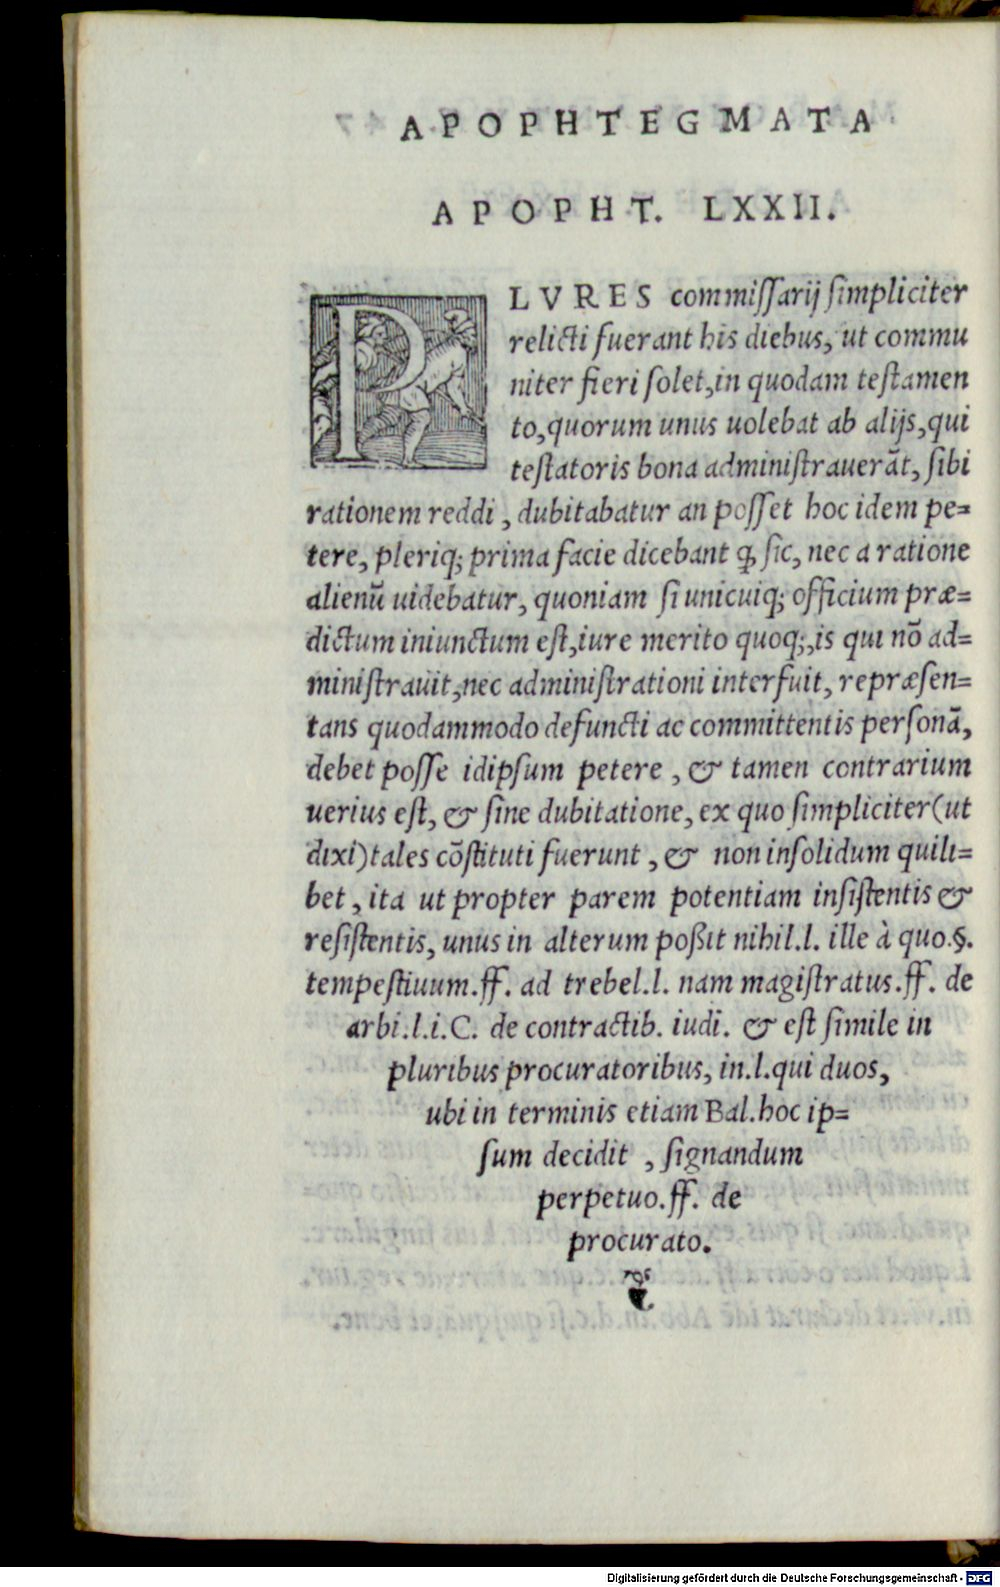 APOPHTEGMATA
APOPHT. LXXII.
PLVRES commiſſarij ſimpliciter
relicti fuerant his diebus, ut commu
niter fieri ſolet, in quodam teſtamen
to, quorum unus uolebat ab alijs, qui
teſtatoris bona adminiſtrauerãt, ſibi
rationem reddi, dubitabatur an poſſet hoc idem pe=
tere, pleriq; prima facie dicebant ꝙ ſic, nec a ratione
alienũ uidebatur, quoniam ſi unicuiq; officium præ=
dictum iniunctum eſt, iure merito quoq;, is qui nõ ad=
miniſtrauit, nec adminiſtrationi interfuit, repræſen=
tans quodammodo defuncti ac committentis perſonã,
debet poſſe idipſum petere, & tamen contrarium
uerius eſt, & ſine dubitatione, ex quo ſimpliciter (ut
dixi) tales cõſtituti fuerunt, & non inſolidum quili=
bet, ita ut propter parem potentiam inſiſtentis &
reſiſtentis, unus in alterum poßit nihil. l. ille à quo. §.
tempeſtiuum. ff. ad trebel. l. nam magiſtratus. ff. de
arbi. l. i. C. de contractib. iudi. & eſt ſimile in
pluribus procuratoribus, in. l. qui duos,
ubi in terminis etiam Bal. hoc ip=
ſum decidit, ſignandum
perpetuo. ff. de
procurato.
Digitalisierung gefördert durch die Deutsche Forschungsgemeinschaft - DFG